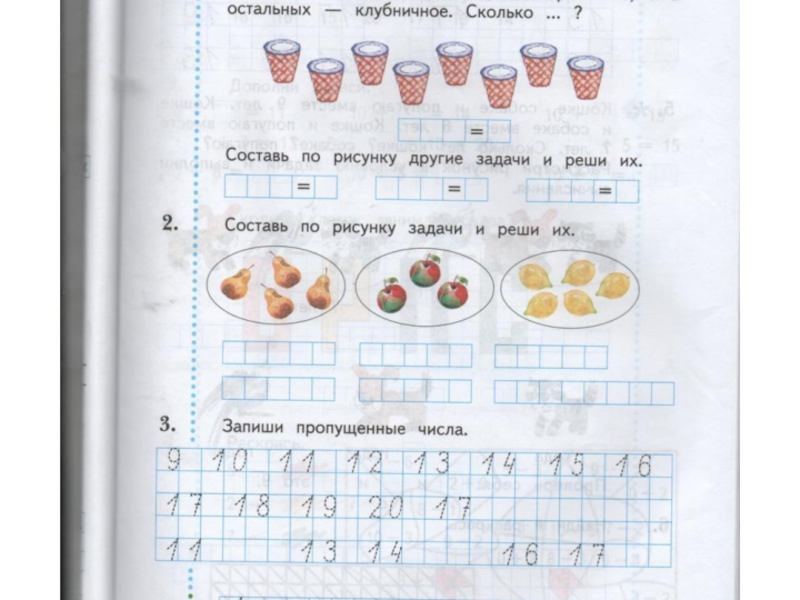 остальных — клубничное. Сколько ... ?
=
Составь по рисунку другие задачи и реши их.
= = =
2. Составь по рисунку задачи и реши их.
3. Запиши пропущенные числа.
9 10 11 12 13 14 15 16
17 18 19 20 17
11 13 14 16 17